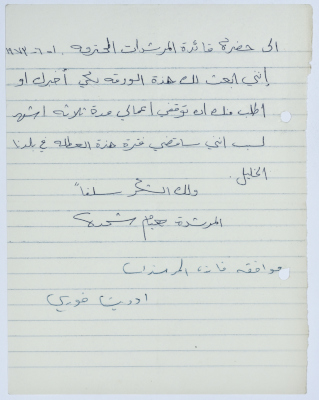 الى حضرة قائدة المرشدات المحترمة
إنني ابعث لك هذة الورقة لكي أخبرك او
أطلب منك ان توقفي أعمالي مدة ثلاثة اشهر
لسبب انني سأقضي فترة هذة العطلة في بلدنا
الخليل.
ولك الشكر سلفاً
المرشدة هيام شحدة
موافقه قائدة المرشدات
خوري